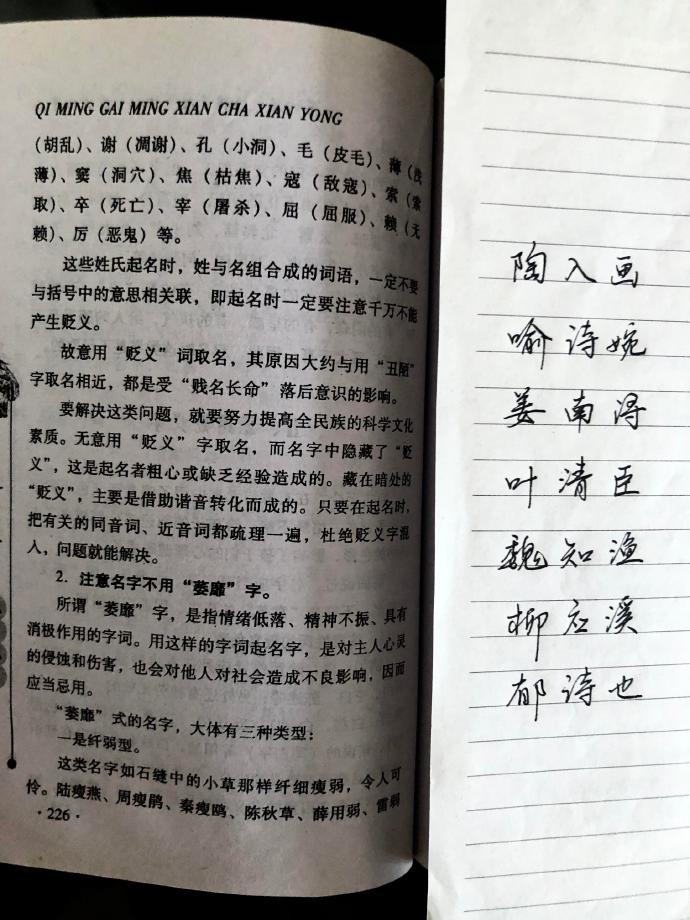 QI MING GAI MING XIAN CHA XIAN YONG
(胡乱)、谢(凋谢)、孔(小洞)、毛(皮毛)、薄(浅
薄)、窦(洞穴)、焦(枯焦)、寇(敌寇)、索(索
取)、卒(死亡)、宰(屠杀)、屈(屈服)、赖(无
赖)、厉(恶鬼)等。
这些姓氏起名时，姓与名组合成的词语，一定不要
与括号中的意思相关联，即起名时一定要注意千万不能
产生贬义。
故意用“贬义”词取名，其原因大约与用“丑陋”
字取名相近，都是受“贱名长命”落后意识的影响。
要解决这类问题，就要努力提高全民族的科学文化
素质。无意用“贬义”字取名，而名字中隐藏了“贬
义”，这是起名者粗心或缺乏经验造成的。藏在暗处的
“贬义”，主要是借助谐音转化而成的。只要在起名时，
把有关的同音词、近音词都疏理一遍，杜绝贬义字混
入，问题就能解决。
2. 注意名字不用“萎靡”字。
所谓“萎靡”字，是指情绪低落、精神不振、具有
消极作用的字词。用这样的字词起名字，是对主人心灵
的侵蚀和伤害，也会对他人对社会造成不良影响，因而
应当忌用。
“萎靡”式的名字，大体有三种类型：
一是纤弱型。
这类名字如石缝中的小草那样纤细瘦弱，令人可
怜。陆瘦燕、周瘦鹃、秦瘦鸥、陈秋草、薛用弱、雷弱
·226·
陶入画
喻诗婉
姜南浔
叶清臣
魏知渔
柳应溪
郁诗也